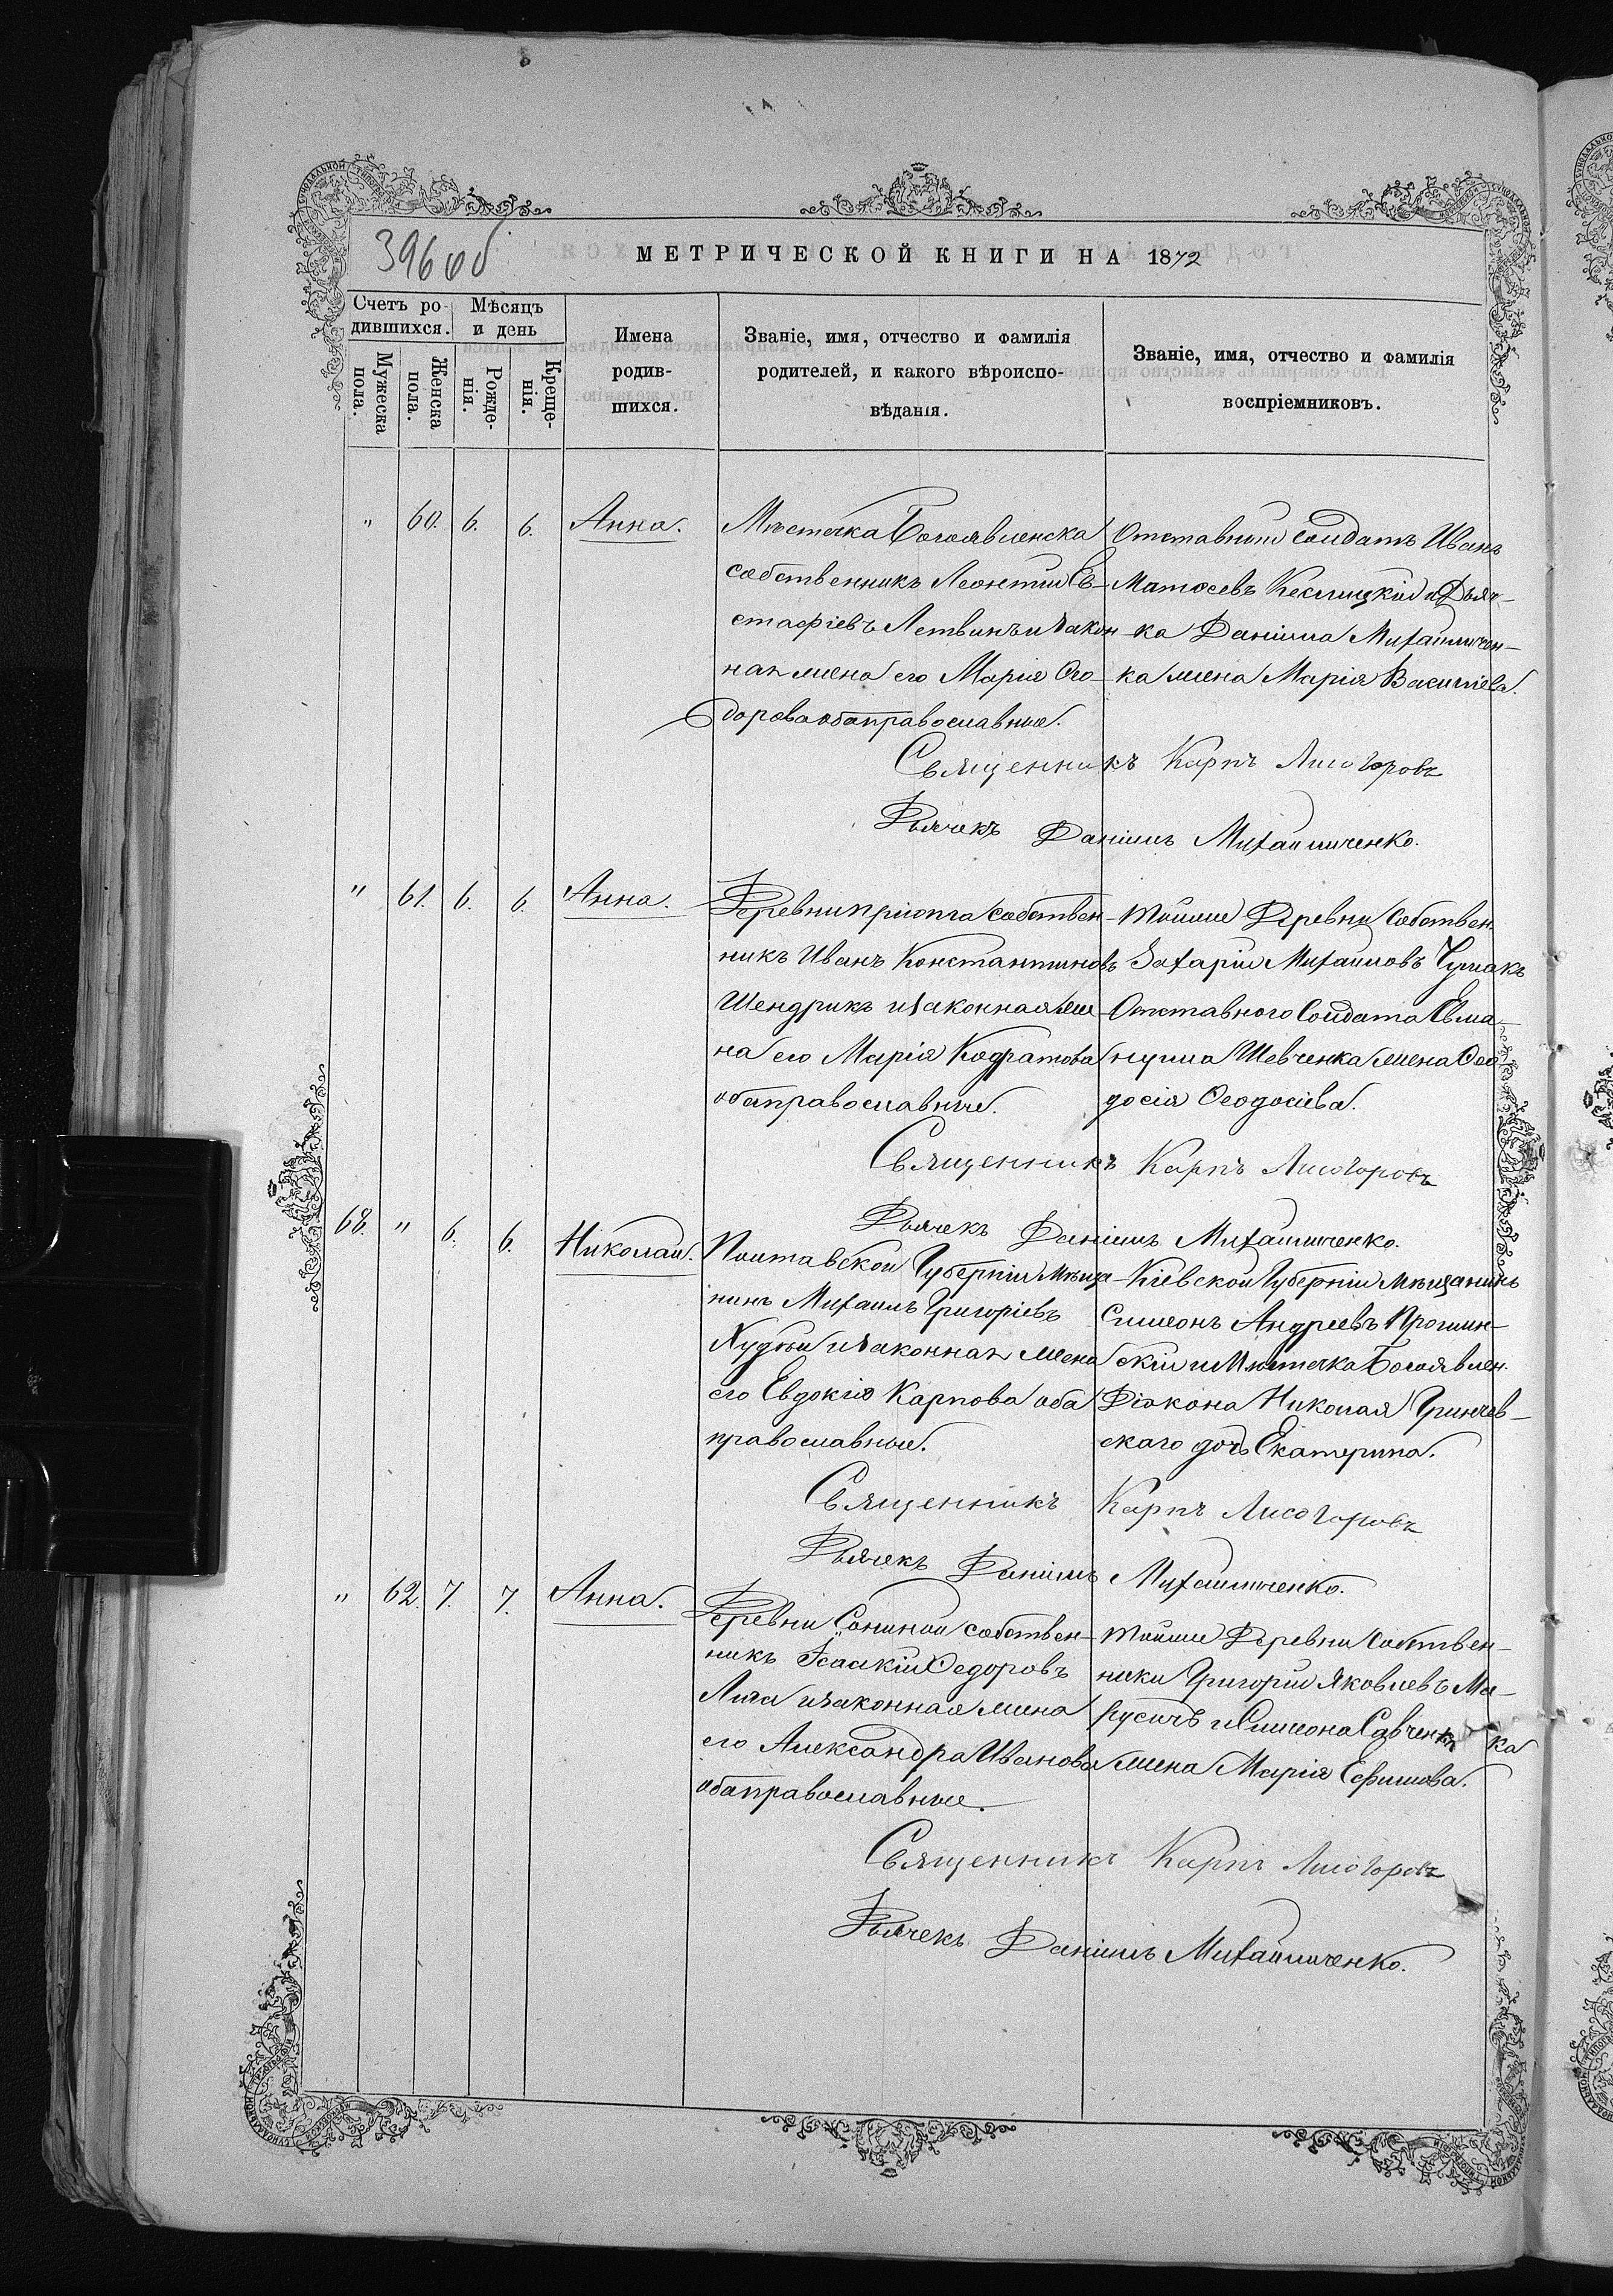 396 об
МЕТРИЧЕСКОЙ КНИГИ НА 1872
Счетъ ро-
дившихся.
Мужеска пола.
Женска пола.
Мѣсяцъ
и день
Рожде-
нія.
Креще-
нія.
Имена
родив-
шихся.
Званіе, имя, отчество и фамилія
родителей, и какого вѣроиспо-
вѣданія.
Званіе, имя, отчество и фамилія
воспріемниковъ.
" 60. 6. 6. Анна.
Мѣстечка Богоявленска
собственникъ Леонтій Ев-
стафіевъ Летвинъ и закон
ная жена его Марія Ѳео
дорова оба православные.
Отставный Солдатъ Иванъ
Матѳеевъ Кеслицкій и Дьяч-
ка Даніила Михайличен-
ка жена Марія Василіева.
Священникъ Карпъ Лисогоровъ
Дьячекъ Даніилъ Михайличенко.
" 61. 6. 6. Анна.
Деревни Пріюта собствен-
никъ Иванъ Константиновъ
Шендрикъ и законная же
на его Марія Кодратова
оба православные.
Тойже Деревни Собствен.
Захарій Михаиловъ Чумакъ
Отставного Солдата Ема
нуила Шевченка жена Ѳео
досія Ѳеодосіева.
Священникъ Карпъ Лисогоровъ
Дьячекъ Даніилъ Михайличенко.
68. " 6. 6. Николай.
Полтавской Губерніи мѣща
нинъ Михаилъ Григоріевъ
Худый и законная жена
его Евдокія Карпова оба
православные.
Кіевской Губерніи мѣщанинъ
Симеонъ Андреевъ
скій и Мѣстечка Богоявлен.
Діакона Николая Гринчев-
скаго дочь Екатерина.
Священникъ Карпъ Лисогоровъ
Дьячекъ Даніилъ Михайличенко.
" 62. 7. 7. Анна.
Деревни Сониной собствен-
никъ Ісаакій Ѳедоровъ
и законная жена
его Александра Иванова
оба православные.
Тойже Деревни Собствен-
ники Григорій Яковлевъ Ма-
русичъ и Симеона Савченка
жена Марія Ефимова.
Священникъ Карпъ Лисогоровъ
Дьячекъ Даніилъ Михайличенко.